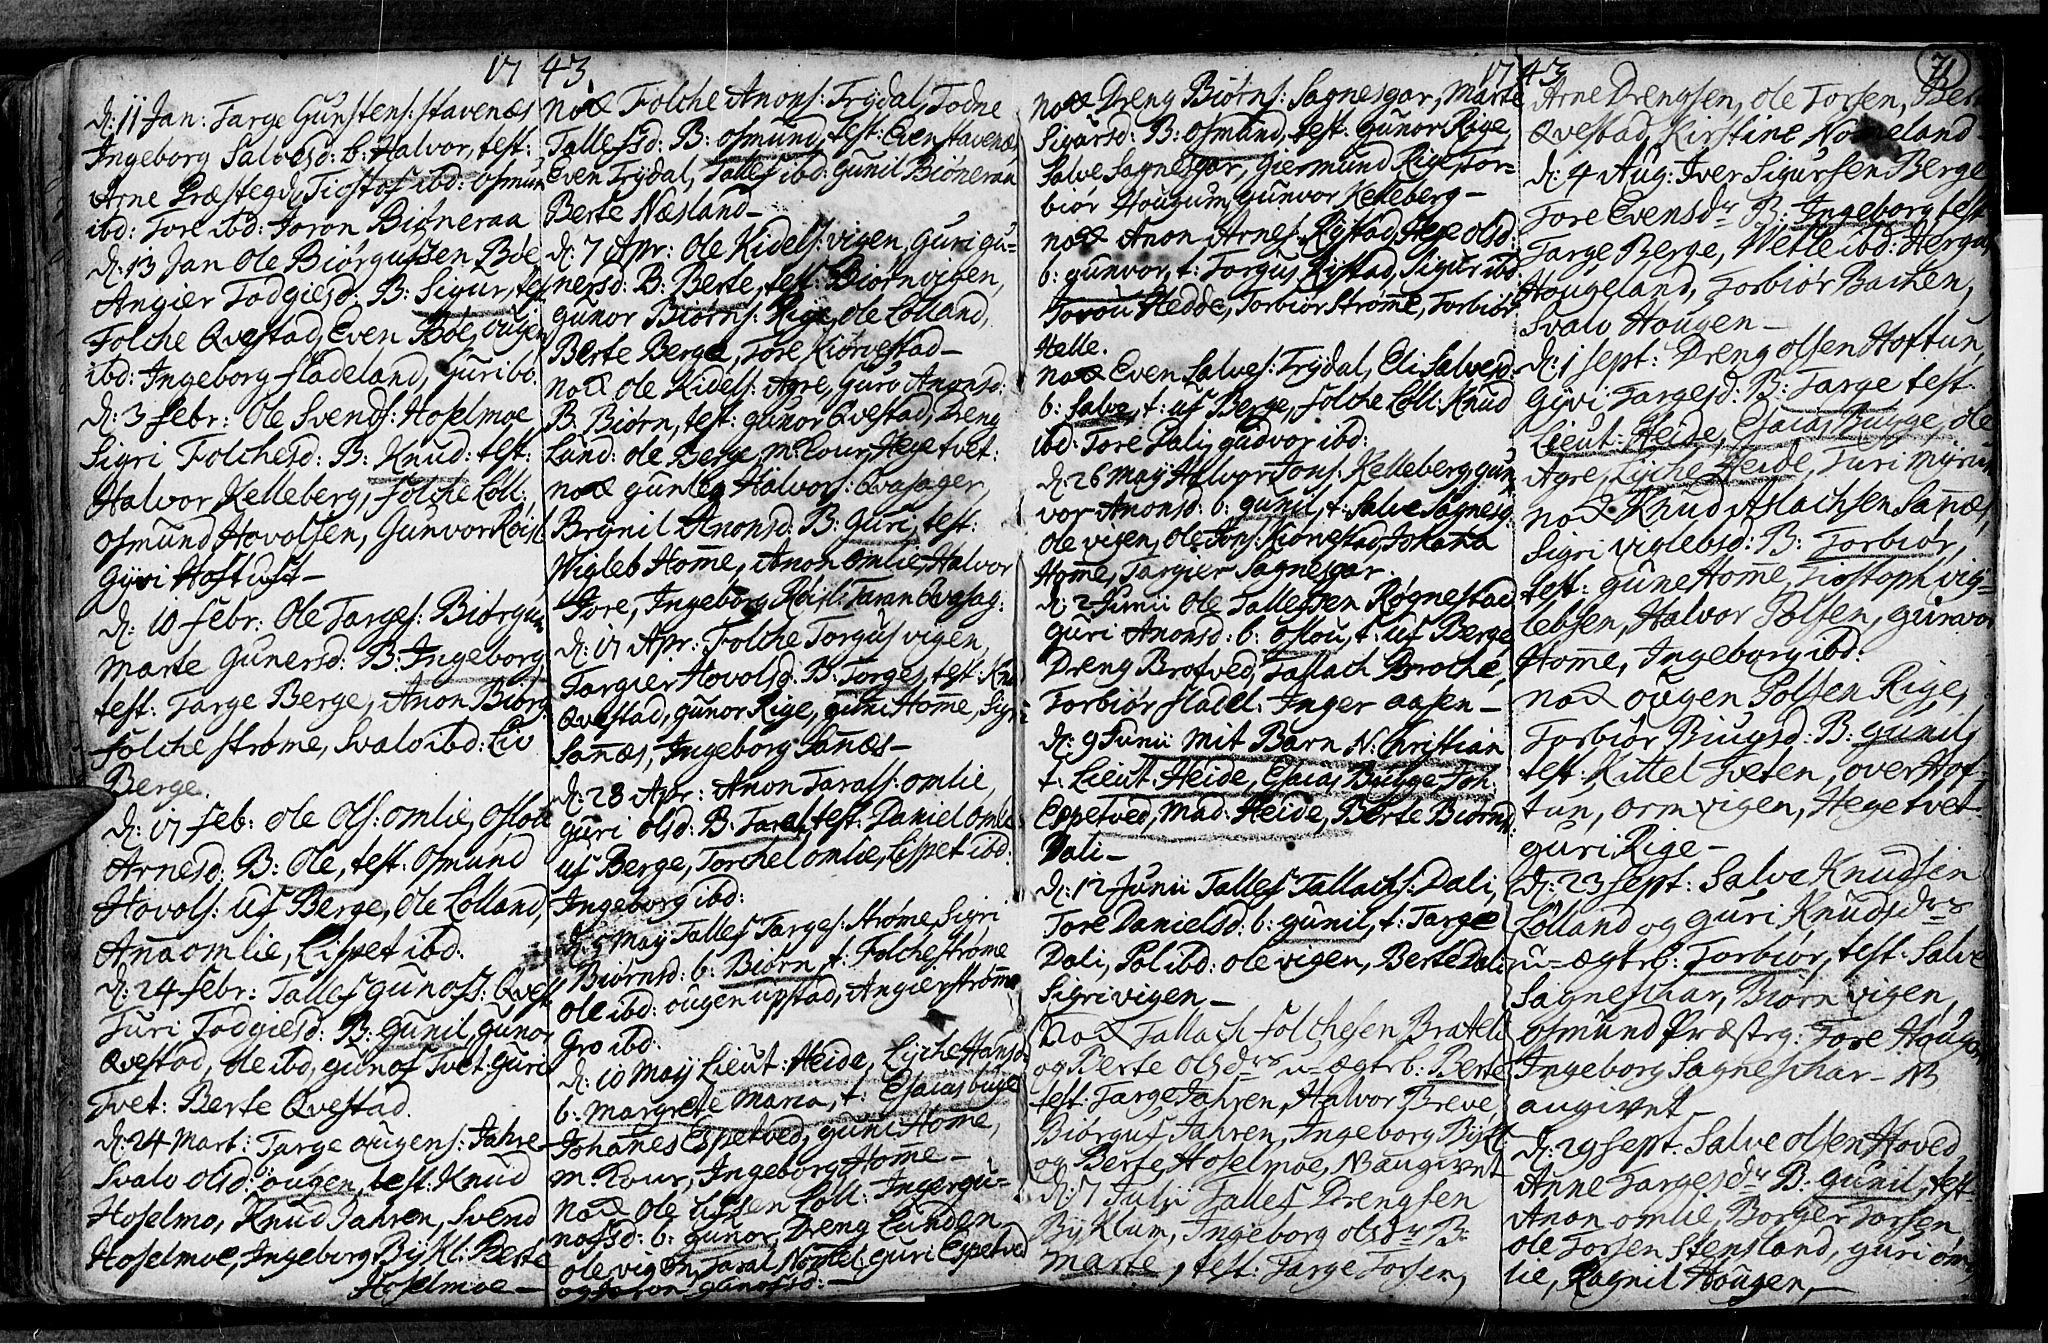 17 43.
d: 11 Jan: Targe Gunstens: Stavenæs
Ingeborg Salvesd: b: Halvor, test:
Arne Præstegd Tiostof ibd: Osmun
ibd: Tore ibd: Joron Biørneraa
d: 13 Jan Ole Biørgufsen Bøe
Angier Todgiesd: B: Sigur, test
Folche Qvestad, Even Bøe, ougen
ibd: Ingeborg fladeland, Guri ib:
d: 3 febr: Ole Svends: Hoslemoe
Sigri Folchesd: B: Knud: test:
Halvor Kelleberg, Folche Loll:
Osmund Hovolsen, Gunvor Røisl
Gyri Hoftuft –
d: 10 febr: Ole Targes: Biørgum
Marte Gunersd: B: Ingeborg
test: Targe Berge, Anon Biørg
folche strøme, Svalo ibd: Liv
Berge.
d: 17 feb: Ole Ols: omlie, Oslou
Arnesd: B: Ole, test: Osmund
Hovols: uf Berge, Ole Lolland,
Anna omlie, Lispet ibd:
d: 24 febr: Tallef Gunofs: Qvest
Turi Todgiesd: B: Gunil, Gunor
Qvestad, Ole ibd, gunof Tvet: Guri
Tvet: Berte Qvestad.
d: 24 Mart: Targe ougens: Jahre
Svalo olsd: b: ougen, test: Knud
Hoslemo, Knud Jahren, Svend
Hoslemoe, Ingeborg Bykl: Berte
Hoslemoe –
nod Folche Anons: Trydal, Todne
Tallefsd: B: Osmund, test: Even Stavenæs,
Even Trydal, Tallef ibd: Gunil Biøneraa
Berte Næsland –
d: 7 Apr: Ole Kidels: vigen, Guri gu-
nersd: B: Berte, test: Biørn vigen,
Gunor Biørns: Rige, Ole Lolland,
Berte Berge, Tore Kiørvestad –
nod Ole Kidels: Agre, Guro Anonsd:
B: Biørn, test: gunor Qvestad, Dreng
Lund: Ole Berge, M: Cour, Hege tvet:
nod Gunleg Halvors: Qvasager,
Brynil Anonsd: B: Guri, test:
Wigleb Home, Anon omlie, Halvor
Tore, Ingeborg Røisl: Taran Qvasag:
d: 17 Apr: Folche Torgus vigen,
Targier Hovolsd: B: Torges, test: Knu
Qvestad, Gunor Rige, guni Home, Sigri
Sanæs, Ingeborg Sanæs –
d: 28 Apr: Anon Taralfs: omlie,
Guri olsd: B: Taral, test: Daniel omlie
uf Berge, Torchel omlie, Lispet ibd:
Ingeborg ibd:
d: 5 May Tallef Targes: Strøme, Sigri
Biørnsd: b: Biørn, t: Folche strøme
Ole ibd: ougen upstad, Angier strøme
Gro ibd:
d: 10 May Lieut: Heide, Liche Hansd:
b: Margrete Maria, t: Esaias buge
Johanes Espetved, guni Home,
M: Cour, Ingeborg Home –
Nod Ole Lifsen Loll: Inger gu-
nofsd: b: gunor, Dreng Lunden
Ole vigen, Taral Nomel: guri Espetved
og Joron gunofsd: –
17 43
71
nod Dreng Biørns: Sagnesgar, Marte
Sigursd: B: Osmund, test: Gunor Rige,
Salve Sagnesgar, Giermund Rige, Tor-
biør Hougum, gunvor Kelleberg –
nod Anon Arnes Rystad, Hege olsd:
b: gunvor, t: Torgus Rystad, Sigur ibd:
Jorou Hedde, Torbiør Strøme, Torbiør
Helle.
nod Even Salves: Trydal, Eli Salvesd:
b: Salve, t: uf Berge, Folche Loll: Knud
ibd: Tore Dali, gudvor ibd:
d: 26 May Halvor Jons: Kelleberg, Gun
vor Anonsd: b: gunil, t: Salve Sagnesg:
Ole vigen, Ole Jons: Kiørvestad, Johana
Home, Targier Sagnesgar.
d: 2 Junii Ole Tallefsen Rygnestad
Guri Anonsd: b: Oslou, t: uf Berge,
Dreng Brotved, Tallach Broche,
Torbiør fladel: Inger aasen –
d: 9 Junii mit Barn N: Christian
t: Lieut: Heide, Esaias Bugge, Joh:
Espetved, Mad: Heide, Berte Biørns
Dali –
d: 12 Junii Tallef Tallachs: Dali,
Tore Danielsd: b: gunil, t: Targe
Dali, Pol ibd: Ole vigen, Berte Dali
Sigri vigen –
Nod Tallach folchesen Brattel:
og Berte olsdr u-ægte b: Berte
test: Targe Jahren, Halvor Breve,
Biørguf Jahren, Ingeborg Bykl:
og Berte Hoslemoe, N: angivet
d: 7 Julii Tallef Drengsen
Byklum, Ingeborg olsdr B:
Marte, test: Targe Torsen,
Arne Drengsen, Ole Torsen, Berte
Qvestad, Kirstine Nomeland
d: 4 Aug: Iver Sigursen Berge,
Tore Evensdr B: Ingeborg, test
Targe Berge, Wetle ibd: Hergus
Hougeland, Torbiør Bachen,
Svalo Hougen –
d: 1 Sept: Dreng olsen Hoftun,
Gyvi Targesd: B: Targe test:
Lieut: Heide, Esaias Bugge, Ole
Agre, Liche Heide, Turi Myrum
Nod Knud Aslachsen Sanæs,
Sigri viglebsd: B: Torbiør,
test: Gune Home, Tiostoph vig-
lebsen, Halvor Polsen, Gunvor
Home, Ingeborg ibd:
nod ougen Polsen Rige,
Torbiør Biugsd: B: Gunil,
test: Kittel Tveten, over Hof-
tun, orm vigen, Hege tvet
guri Rige –
d: 23 Sept: Salve Knudsen
Lolland og Guri Knudsdr
u-ægte b: Torbiør, test: Salve
Sagneschar, Biørn vigen,
Osmund Præstg: Tore Hougen
Ingeborg Sagneschar – N
angivet –
d: 29 Sept: Salve olsen Hoved
Anne Targesdr B: Gunil, test
Anon omlie, Borger Torsen
Ole Torsen Stensland, guri om
lie, Ragnil Hougen, –